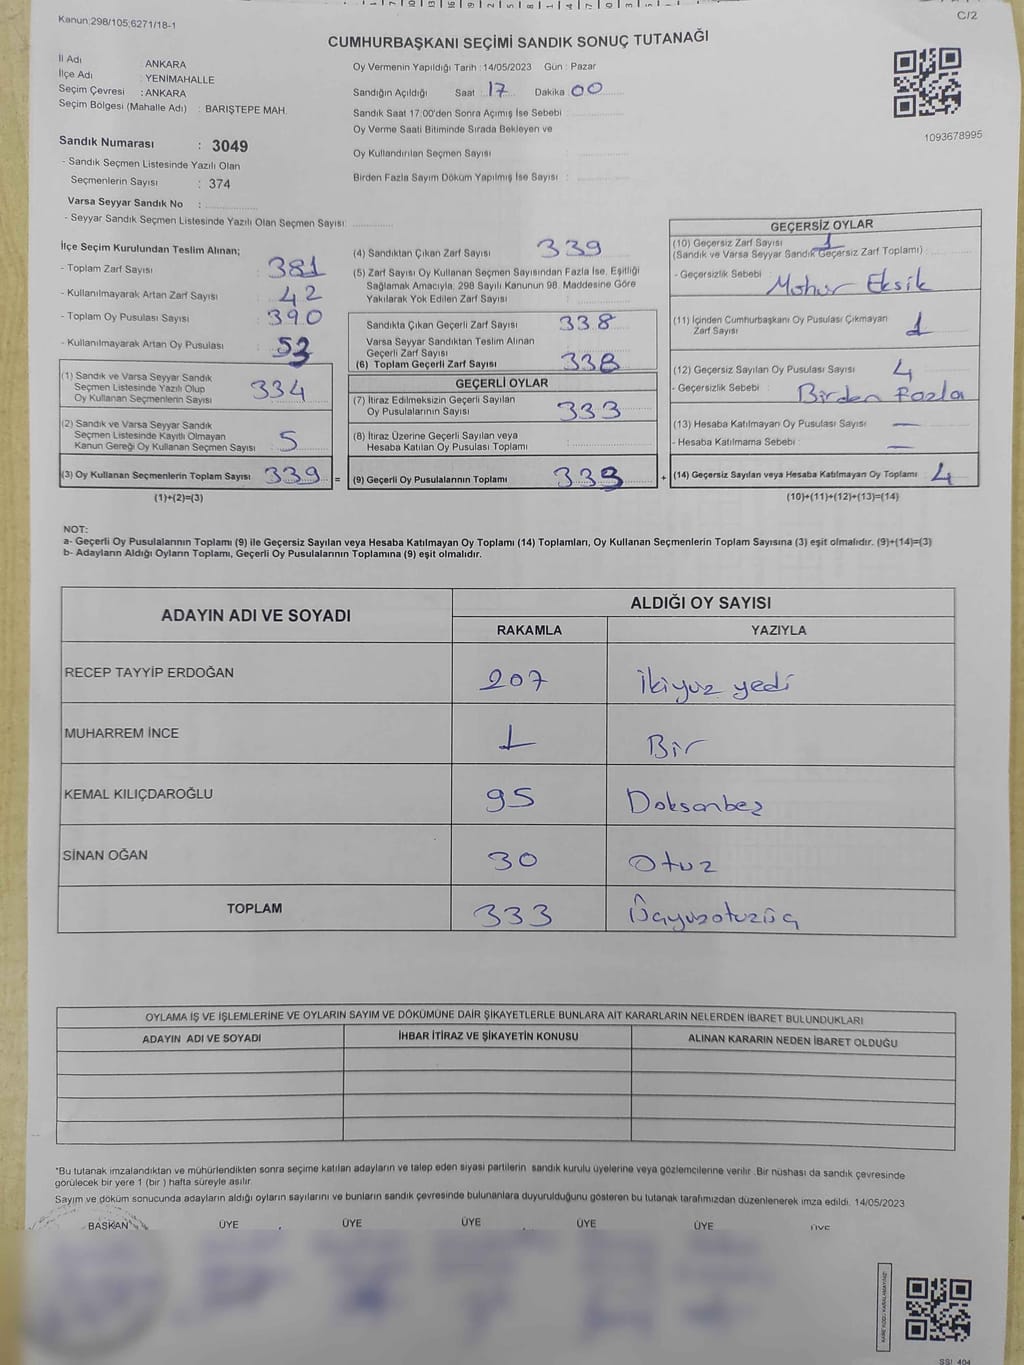 Kanun:298/105;6271/18-1
C/2
CUMHURBAŞKANI SEÇİMİ SANDIK SONUÇ TUTANAĞI
İl Adı ANKARA
İlçe Adı : YENİMAHALLE
Seçim Çevresi : ANKARA
Seçim Bölgesi (Mahalle Adı) : BARIŞTEPE MAH.
Oy Vermenin Yapıldığı Tarih : 14/05/2023 Gün : Pazar
Sandığın Açıldığı Saat : 17 Dakika : 00
Sandık Saat 17:00'den Sonra Açılmış İse Sebebi :
Oy Verme Saati Bitiminde Sırada Bekleyen ve
Oy Kullandırılan Seçmen Sayısı :
Birden Fazla Sayım Döküm Yapılmış İse Sayısı :
1093678995
Sandık Numarası : 3049
- Sandık Seçmen Listesinde Yazılı Olan
Seçmenlerin Sayısı : 374
Varsa Seyyar Sandık No :
- Seyyar Sandık Seçmen Listesinde Yazılı Olan Seçmen Sayısı:
İlçe Seçim Kurulundan Teslim Alınan;
- Toplam Zarf Sayısı : 381
- Kullanılmayarak Artan Zarf Sayısı : 42
- Toplam Oy Pusulası Sayısı : 390
- Kullanılmayarak Artan Oy Pusulası : 53
(1) Sandık ve Varsa Seyyar Sandık
Seçmen Listesinde Yazılı Olup
Oy Kullanan Seçmenlerin Sayısı 334
(2) Sandık ve Varsa Seyyar Sandık
Seçmen Listesinde Kayıtlı Olmayan
Kanun Gereği Oy Kullanan Seçmen Sayısı 5
(3) Oy Kullanan Seçmenlerin Toplam Sayısı 339 =
(1)+(2)=(3)
(4) Sandıktan Çıkan Zarf Sayısı : 339
(5) Zarf Sayısı Oy Kullanan Seçmen Sayısından Fazla İse, Eşitliği
Sağlamak Amacıyla; 298 Sayılı Kanunun 98. Maddesine Göre
Yakılarak Yok Edilen Zarf Sayısı :
Sandıkta Çıkan Geçerli Zarf Sayısı : 338
Varsa Seyyar Sandıktan Teslim Alınan
Geçerli Zarf Sayısı :
(6) Toplam Geçerli Zarf Sayısı : 338
GEÇERLİ OYLAR
(7) İtiraz Edilmeksizin Geçerli Sayılan
Oy Pusulalarının Sayısı : 333
(8) İtiraz Üzerine Geçerli Sayılan veya
Hesaba Katılan Oy Pusulası Toplamı :
(9) Geçerli Oy Pusulalarının Toplamı : 333 +
GEÇERSİZ OYLAR
(10) Geçersiz Zarf Sayısı : 1
(Sandık ve Varsa Seyyar Sandık Geçersiz Zarf Toplamı)
- Geçersizlik Sebebi : Mohur Eksik
(11) İçinden Cumhurbaşkanı Oy Pusulası Çıkmayan
Zarf Sayısı : 1
(12) Geçersiz Sayılan Oy Pusulası Sayısı : 4
- Geçersizlik Sebebi : Birden Fazla
(13) Hesaba Katılmayan Oy Pusulası Sayısı : —
- Hesaba Katılmama Sebebi : —
(14) Geçersiz Sayılan veya Hesaba Katılmayan Oy Toplamı 4
(10)+(11)+(12)+(13)=(14)
NOT:
a- Geçerli Oy Pusulasının Toplamı (9) ile Geçersiz Sayılan veya Hesaba Katılmayan Oy Toplamı (14) Toplamları, Oy Kullanan Seçmenlerin Toplam Sayısına (3) eşit olmalıdır. (9)+(14)=(3)
b- Adayların Aldığı Oyların Toplamı, Geçerli Oy Pusulalarının Toplamına (9) eşit olmalıdır.
ADAYIN ADI VE SOYADI ALDIĞI OY SAYISI
RAKAMLA YAZIYLA
RECEP TAYYİP ERDOĞAN 207 İkiyuz yedi
MUHARREM İNCE 1 Bir
KEMAL KILIÇDAROĞLU 95 Doksanbeş
SİNAN OĞAN 30 Otuz
TOPLAM 333 Üçyuzotuzüç
OYLAMA İŞ VE İŞLEMLERİNE VE OYLARIN SAYIM VE DÖKÜMÜNE DAİR ŞİKAYETLERLE BUNLARA AİT KARARLARIN NELERDEN İBARET BULUNDUKLARI
ADAYIN ADI VE SOYADI İHBAR İTİRAZ VE ŞİKAYETİN KONUSU ALINAN KARARIN NEDEN İBARET OLDUĞU
*Bu tutanak imzalandıktan ve mühürlendikten sonra seçime katılan adayların ve talep eden siyasi partilerin sandık kurulu üyelerine veya gözlemcilerine verilir. Bir nüshası da sandık çevresinde
görülecek bir yere 1 (bir) hafta süreyle asılır.
Sayım ve döküm sonucunda adayların aldığı oyların sayılarını ve bunların sandık çevresinde bulunanlara duyurulduğunu gösteren bu tutanak tarafımızdan düzenlenerek imza edildi. 14/05/2023
BAŞKAN ÜYE ÜYE ÜYE ÜYE ÜYE ÜYE
KARE KODU KARALAMAYINIZ!